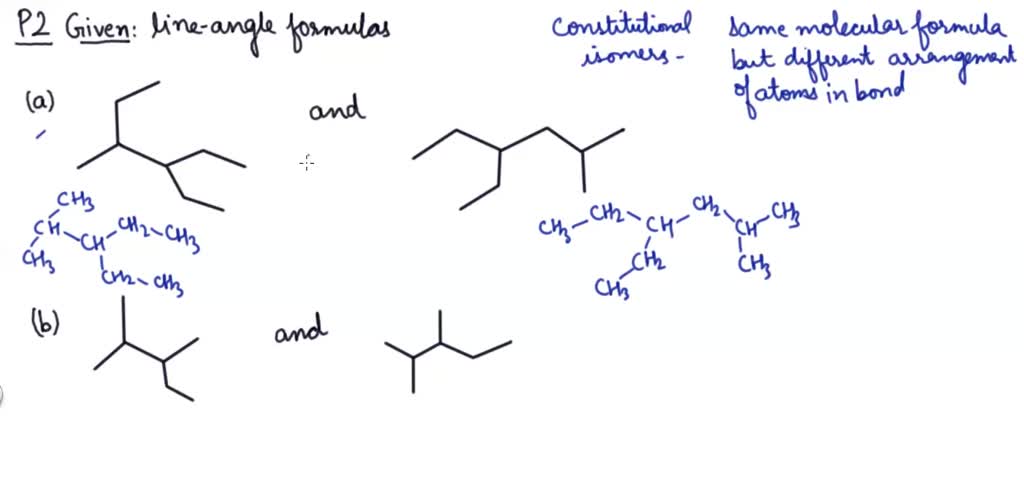 P2 Given: line-angle formulas
Constitutional isomers -
same molecular formula
but different arrangement
of atoms in bond
(a)
and
CH3
CH CH CH2 CH3
CH3
CH2 CH3
CH3 CH2 CH CH2 CH CH3
CH2 CH3
CH3
(b)
and